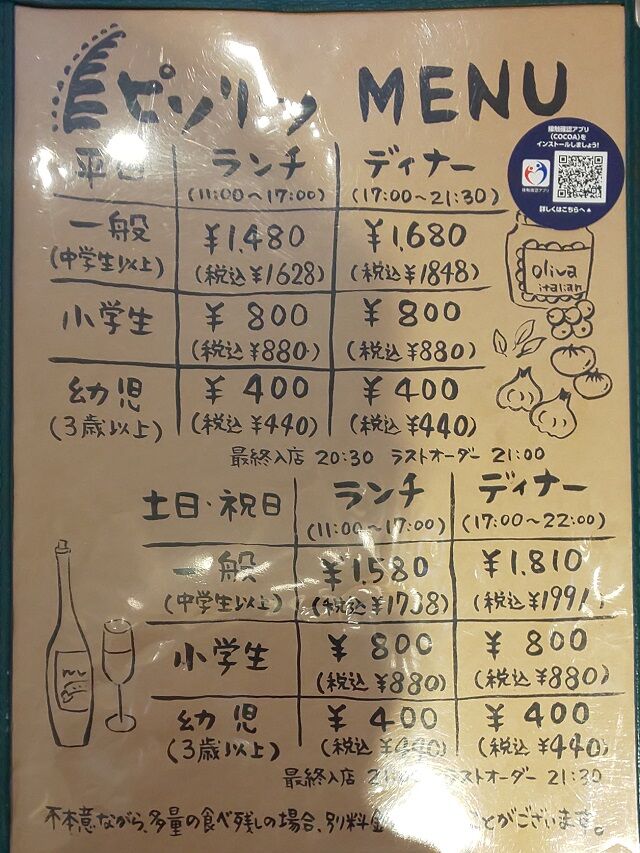 ピソリーノ MENU
接触確認アプリ
(COCOA)を
インストールしましょう!
接触確認アプリ
詳しくはこちらへ▲
平日 ランチ ディナー
(11:00〜17:00) (17:00〜21:30)
一般 ¥1,480 ¥1,680
(中学生以上) (税込¥1628) (税込¥1848)
小学生 ¥800 ¥800
(税込¥880) (税込¥880)
幼児 ¥400 ¥400
(3歳以上) (税込¥440) (税込¥440)
oliva
italian
最終入店 20:30 ラストオーダー 21:00
土日・祝日 ランチ ディナー
(11:00〜17:00) (17:00〜22:00)
一般 ¥1,580 ¥1,810
(中学生以上) (税込¥1738) (税込¥1991)
小学生 ¥800 ¥800
(税込¥880) (税込¥880)
幼児 ¥400 ¥400
(3歳以上) (税込¥440) (税込¥440)
最終入店 ラストオーダー 21:30
不本意ながら、多量の食べ残しの場合、別料金 とがございます。